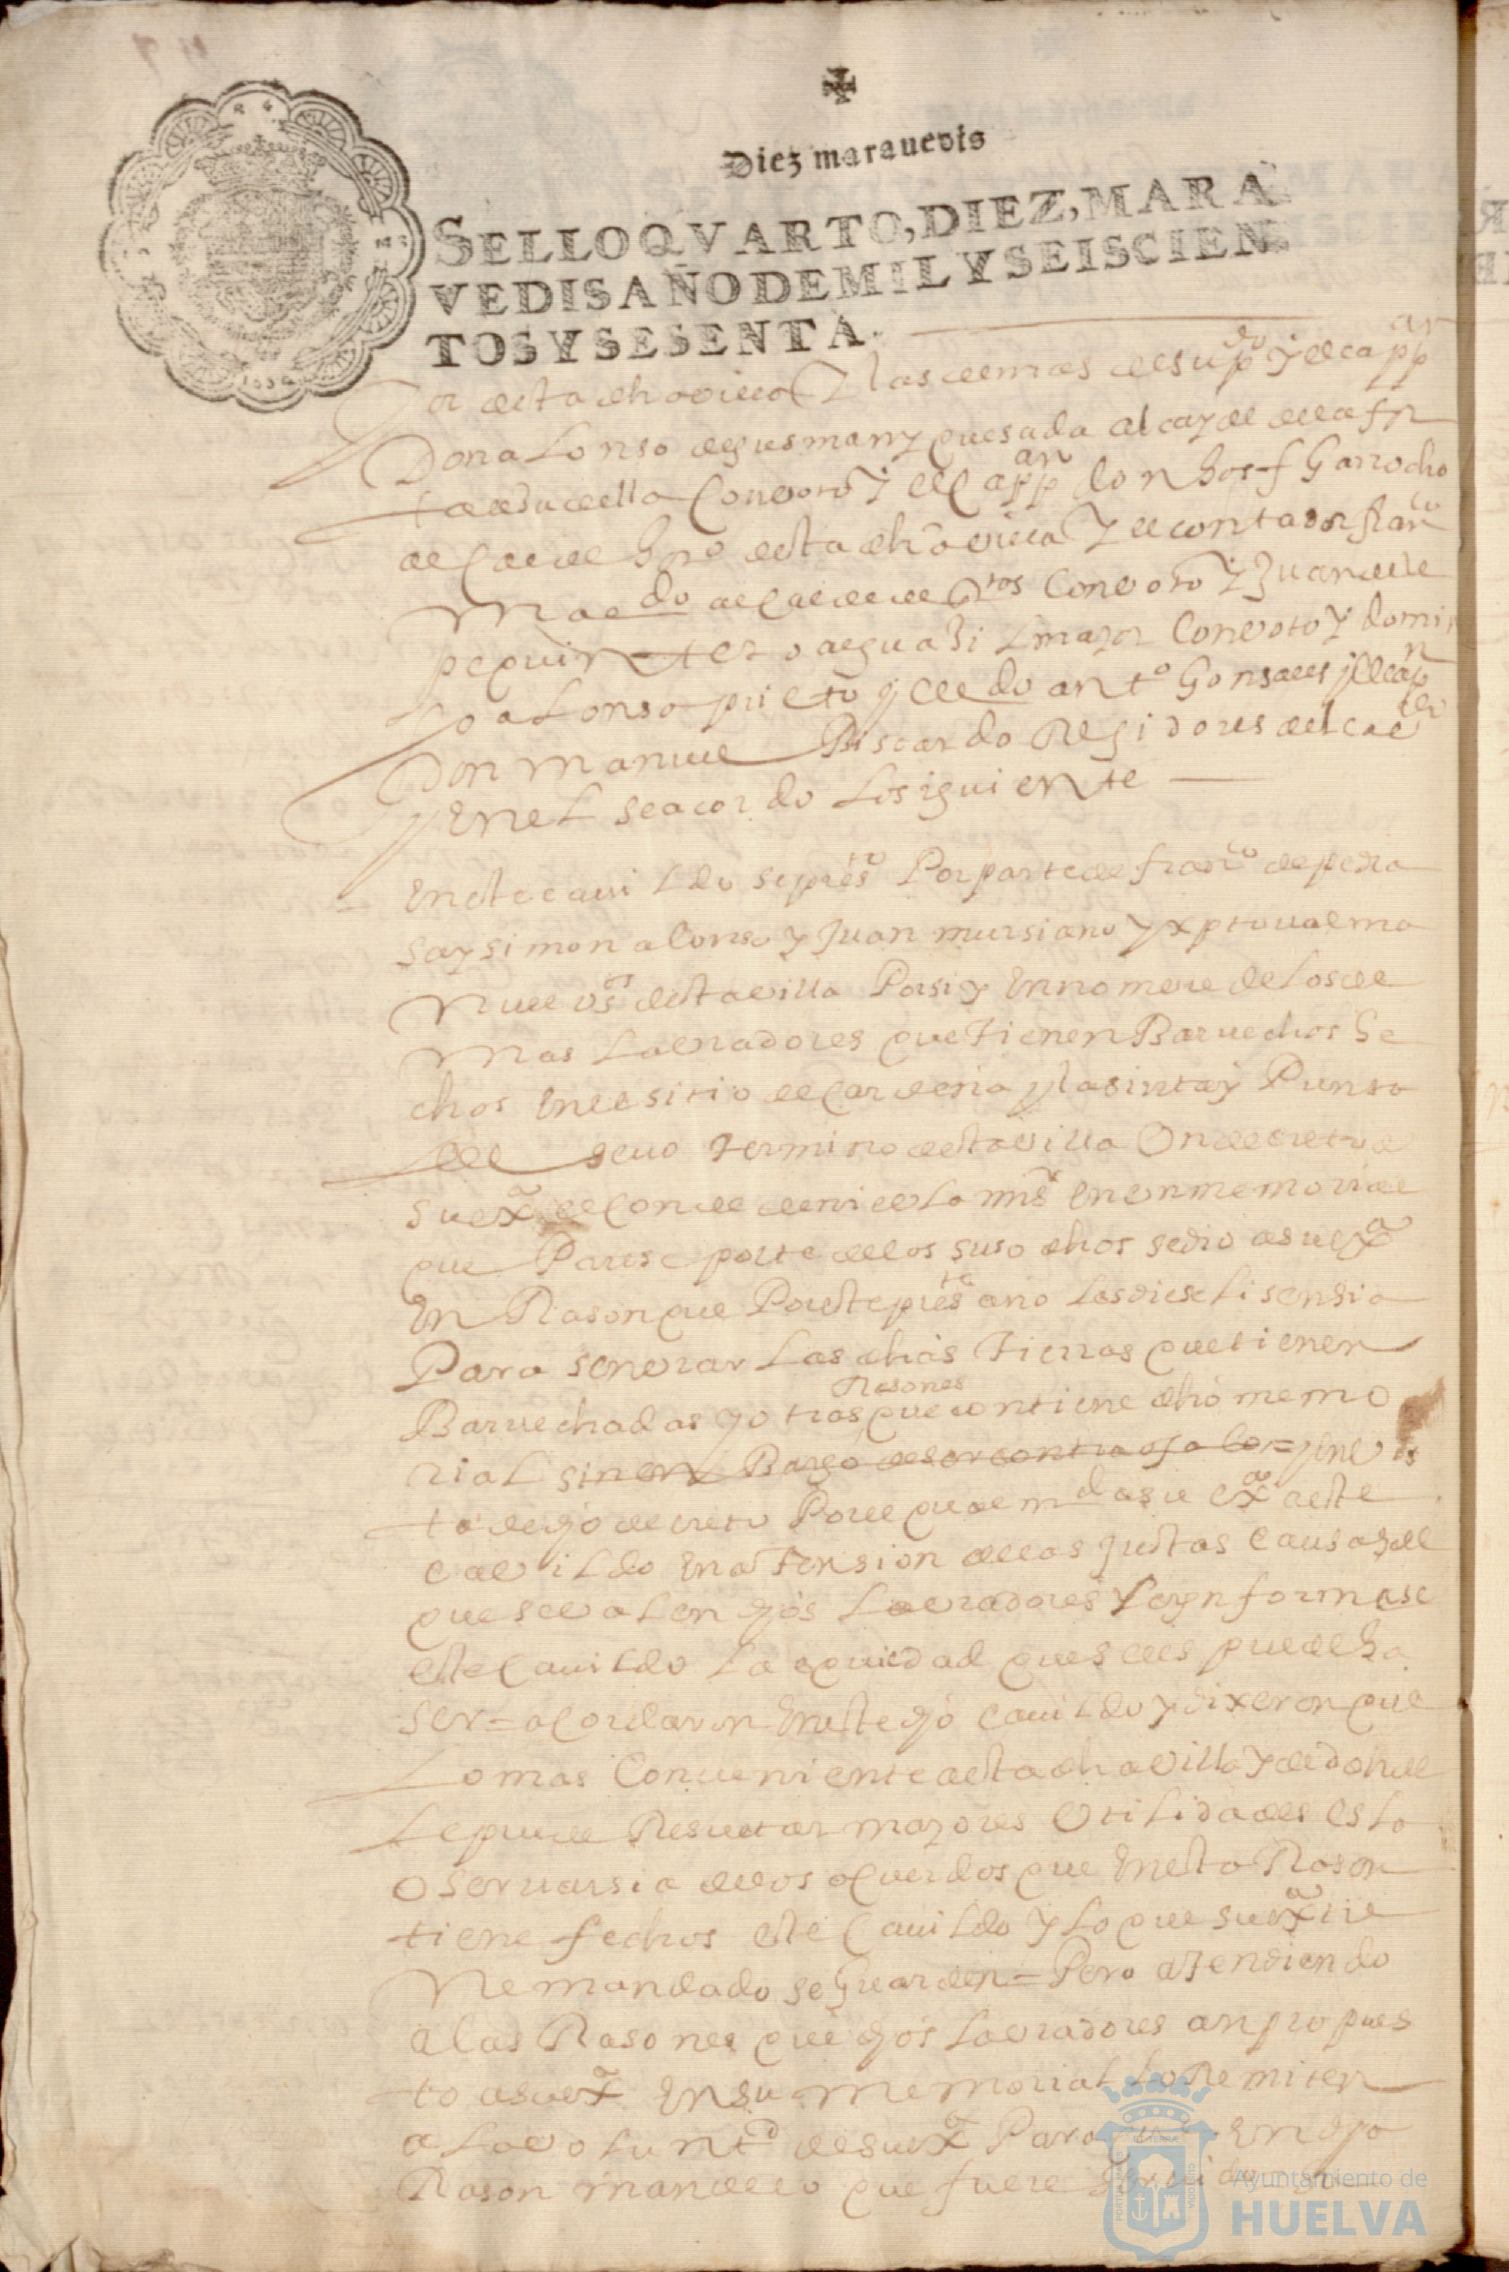 Diez marauedis
SELLO QVARTO, DIEZ, MARA
VEDIS AÑO DE MIL Y SEISCIEN
TOS Y SESENTA.
or desta dha villa Y las demas de su pdo y el cappan
Don alonso de gusman y quesada alcayde de la for
ta de la villa Con voto Y el cappan don Garrocho
desta dha villa Y el contador franco
Con voto Y Juan de
alguasil mayor Con voto Y domin
go alonso prieto y el ldo anto Gonsales y el cap
Don manuel Piscardo Regidores del cao
y En el se acordo Lo siguiente
En este cauildo se presto Por parte de franco de pedra
sa y simon alonso y Juan mursiano y xptoual ma
nuel vsos desta villa Por si y En nomvre de Los de
mas Lavradores que Tienen Baruechos he
chos En el sitio de Cardeña y la sinta y Punta
del sevo termino desta villa Vn decreto de
su exa el Conde de nievla mi sr En vn memorial
que Parese por te de los suso dhos se dio a su exa
En Rason que Por este preste año Les diese Lisensia
Para senvrar Las dhas Tierras que tienen
Baruechadas y otras Rasones que contiene dho memo
rial sin en Bargo de ser contra y en vis
ta de dho decreto Por el que manda su exa a este
cavildo En atension de las Justas causas de
que se valen dhos Lavradores y ynformase
este Cauildo La equidad que se les puede ha
ser = aCordaron En este dho cauildo y dixeron que
Lo mas Conveniente a esta dha villa Y de donde
Le puede Resultar mayores Vtilidades es La
oservansia de los aCuerdos que En esta Rason
tiene fechos este Cauildo Y Lo que su exa tie
ne mandado se Guarden = Pero atendiendo
a las Rasones que dhos Lavradores an propues
to a su exa En su memorial Lo Remiten
a La voluntd de su exa Para que En dha
Rason mande Lo que fuere servido
Ayuntamiento de
HUELVA